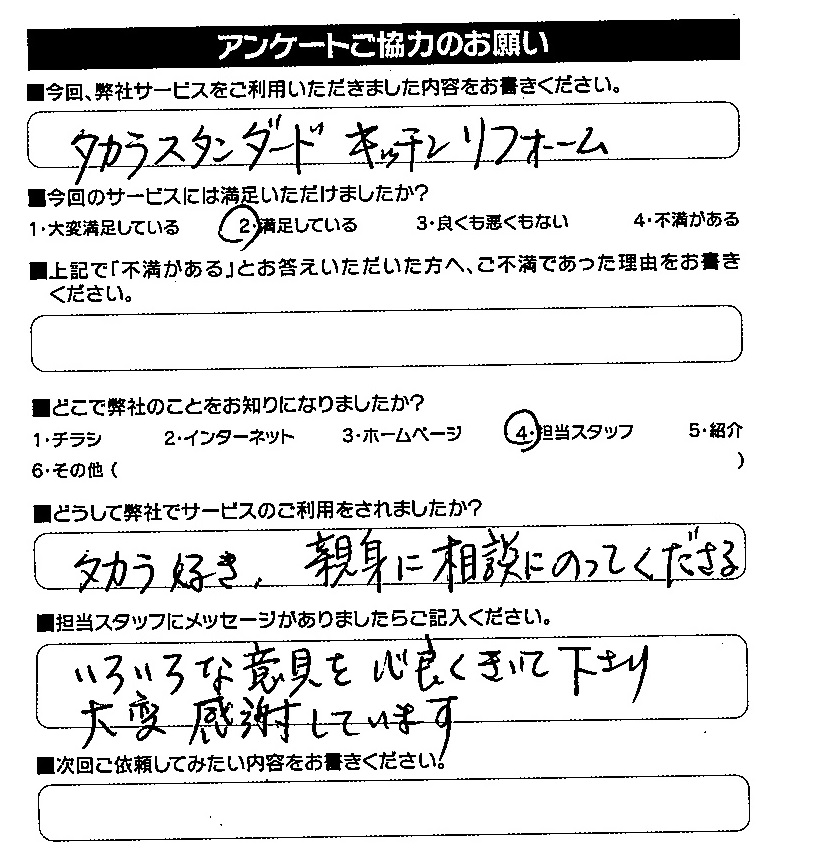 アンケートご協力のお願い
■今回、弊社サービスをご利用いただきました内容をお書きください。
タカラスタンダード キッチンリフォーム
■今回のサービスには満足いただけましたか?
1・大変満足している 2・満足している 3・良くも悪くもない 4・不満がある
■上記で「不満がある」とお答えいただいた方へ、ご不満であった理由をお書き
ください。
■どこで弊社のことをお知りになりましたか?
1・チラシ 2・インターネット 3・ホームページ 4・担当スタッフ 5・紹介
6・その他 ( )
■どうして弊社でサービスのご利用をされましたか?
タカラ好き、親身に相談にのってくださる
■担当スタッフにメッセージがありましたらご記入ください。
いろいろな意見を心良くきいて下さり
大変感謝しています
■次回ご依頼してみたい内容をお書きください。